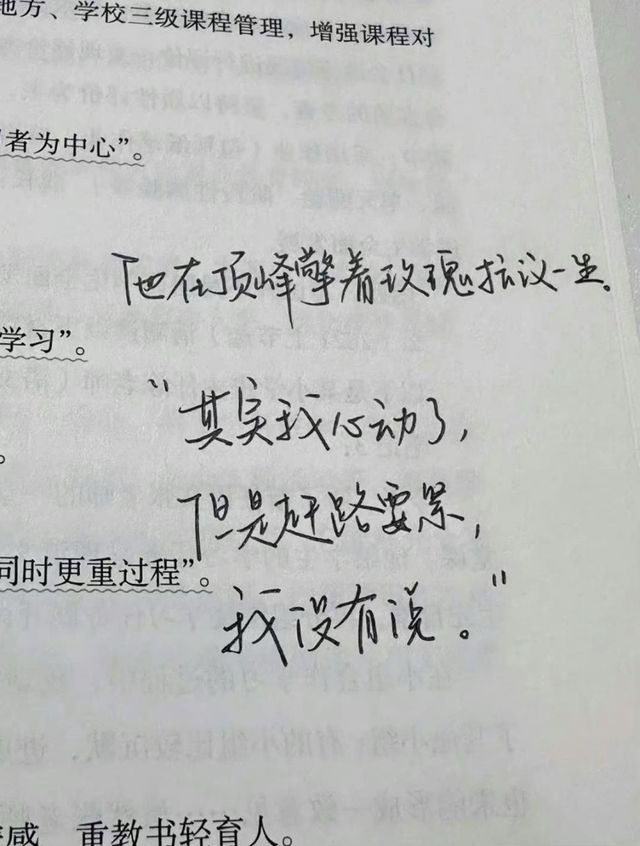 地方、学校三级课程管理，增强课程对
者为中心”。
他在顶峰擎着玫瑰抗议一生。
学习”。
“其实我心动了，
。
但是赶路要紧，
同时更重过程”。
我没有说。”
重教书轻育人。